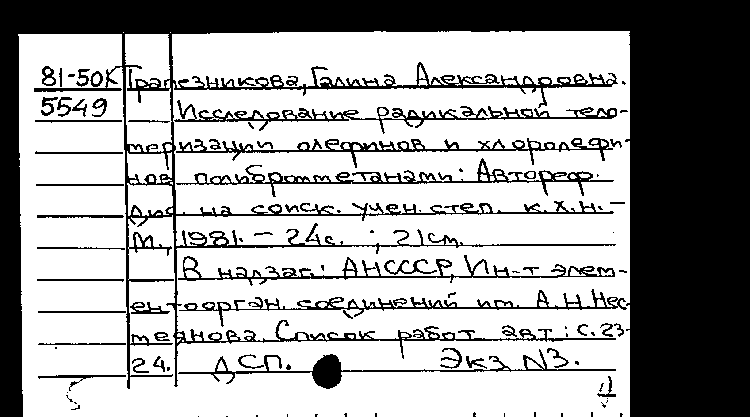 81-50К Трапезникова, Галина Александровна.
5549 Исследование радикальной тело-
меризации олефинов и хлоролефи-
нов полибромметанами: Автореф.
дис. на соиск. учен. степ. к.х.н. –
М., 1981. – 24с. ; 21см.
В надзаг.: АНСССР, Ин-т элем-
ентоорган. соединений им. А.Н.Нес-
меянова. Список работ авт.: с.23-
24. ДСП. Экз N3.